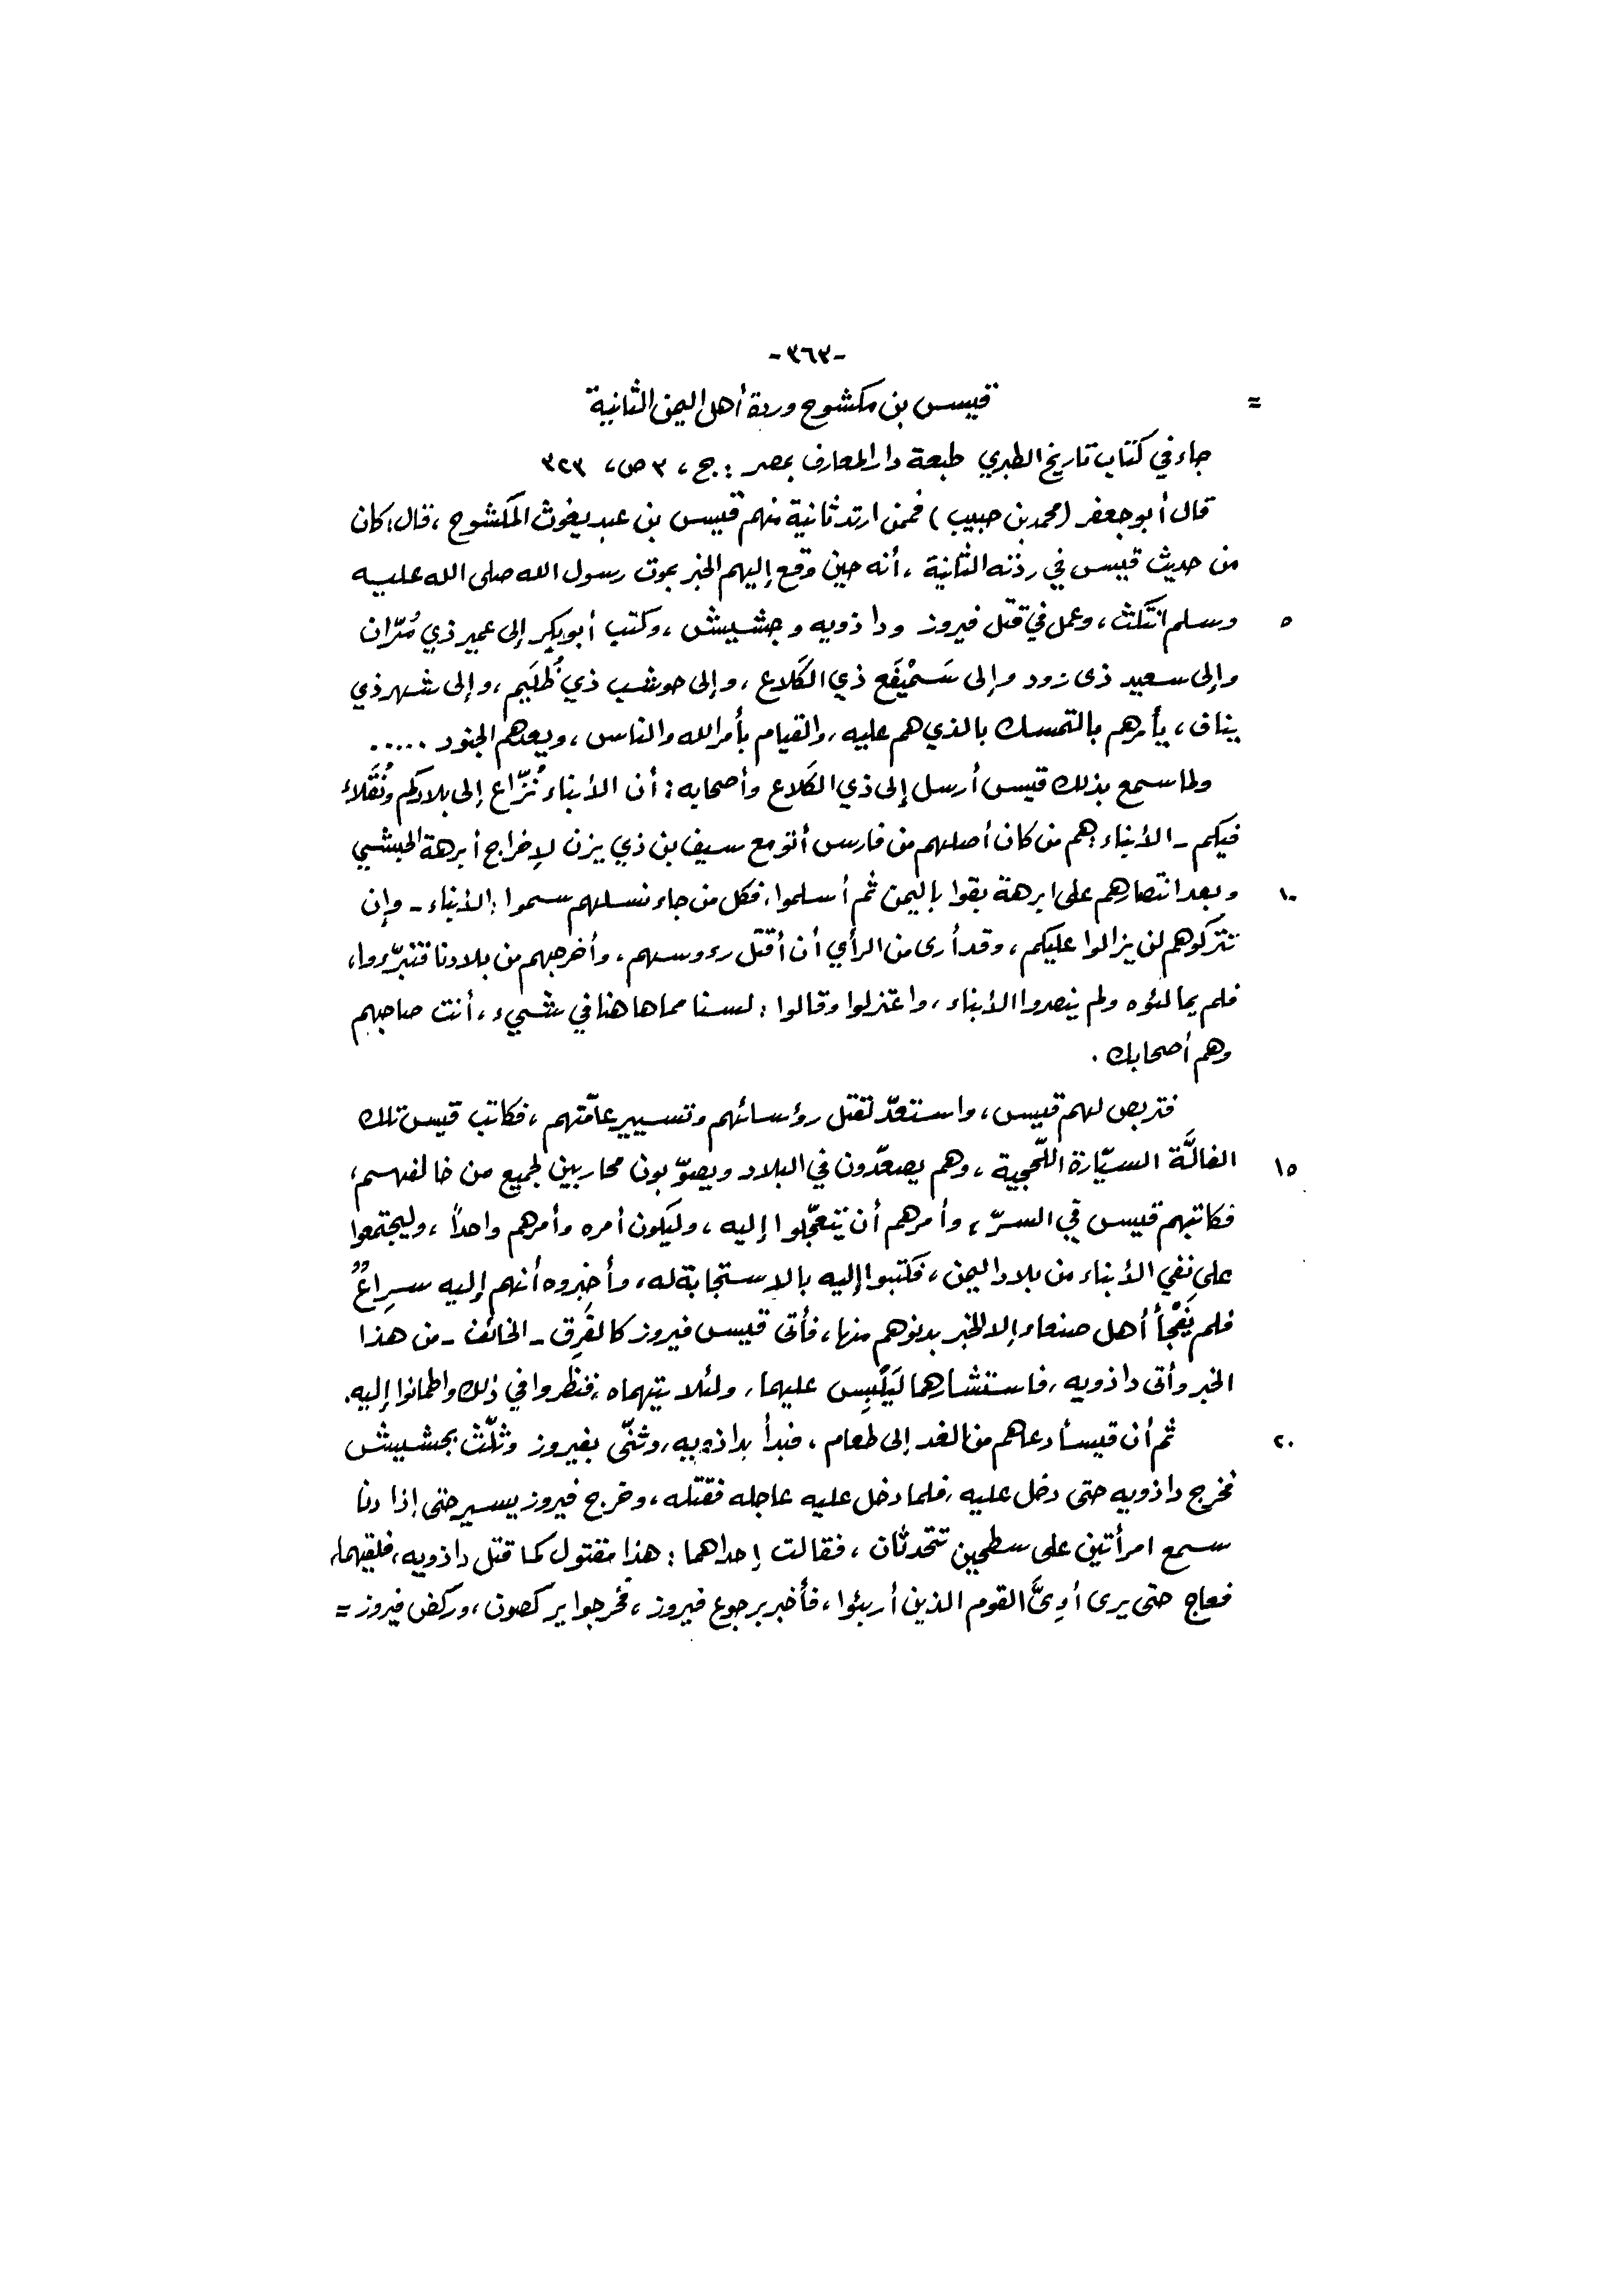 -٣٦٣-
= قيس بن مكشوح وردة أهل اليمن الثانية
جاء في كتاب تاريخ الطبري طبعة دار المعارف بمصر : ج ، ٣ ص ، ٣٢٣
قال أبو جعفر (محمد بن حبيب) فممن ارتد ثانية منهم قيس بن عبد يغوث المكشوح ، قال : كان
من حديث قيس في ردّته الثانية ، أنه حين وقع إليهم الخبر بموت رسول الله صلى الله عليه
٥ وسلم انتكث ، وعمل في قتل فيروز وداذويه وجشيش ، وكتب أبو بكر إلى عمير ذي مُرّان
وإلى سعيد ذى زود وإلى سَمَيْفَع ذي الكَلاع ، وإلى حوشب ذي ظُلَيم ، وإلى شهر ذي
يناف ، يأمرهم بالتمسك بالذي هم عليه ، والقيام بأمر الله والناس ، ويعدهم الجنود .....
ولما سمع بذلك قيس أرسل إلى ذي الكَلاع وأصحابه : أن الأبناء نُزّاع إلى بلادكم ونُقَلاء
فيكم - الأبناء : هم من كان أصلهم من فارس أتو مع سيف بن ذي يزن لإخراج أبرهة الحبشي
١٠ وبعد انتصارهم على ابرهة بقوا باليمن ثم أسلموا ، فكل من جاء نسلهم سموا : الأبناء - وإن
تتركوهم لن يزالوا عليكم ، وقد أرى من الرأي أن أقتل رءوسهم ، وأخرجهم من بلادنا فتبرّءوا ،
فلم يمالئوه ولم ينصروا الأبناء ، واعتزلوا وقالوا : لسنا مما هاهنا في شيء ، أنت صاحبهم
وهم أصحابك .
فتربص لهم قيس ، واستعدّ لقتل رؤسائهم وتسيير عامّتهم ، فكاتب قيس تلك
١٥ الفالَّة السيّارة اللّحجية ، وهم يصعّدون في البلاد ويصوّبون محاربين لجميع من خالفهم ،
فكاتبهم قيس في السرّ ، وأمرهم أن يتعجّلوا إليه ، وليكون أمره وأمرهم واحداً ، وليجتمعوا
على نفي الأبناء من بلاد اليمن ، فكتبوا إليه بالاستجابة له ، وأخبروه أنهم إليه سِراعٌ
فلم يَفْجأ أهل صنعاء إلا الخبر بدنوهم منها ، فأتى قيس فيروز كالفَرِق - الخائف - من هذا
الخبر وأتى داذويه ، فاستشارهما ليَلْبِس عليهما ، ولئلا يتهماه ، فنظروا في ذلك واطمانوا إليه .
٢٠ ثم أن قيساً دعاهم من الغد إلى طعام ، فبدأ بداذويه ، وثنّى بفيروز وثلّث بجشيش
فخرج داذويه حتى دخل عليه ، فلما دخل عليه عاجله فقتله ، وخرج فيروز يسير حتى إذا دنا
سمع امرأتين على سطحين تتحدثان ، فقالت إحداهما : هذا مقتول كما قتل داذويه ، فلقيهما ،
فعاج حتى يرى أوِىَّ القوم الذين أربئوا ، فأخبر برجوع فيروز ، فخرجوا يركضون ، وركض فيروز =